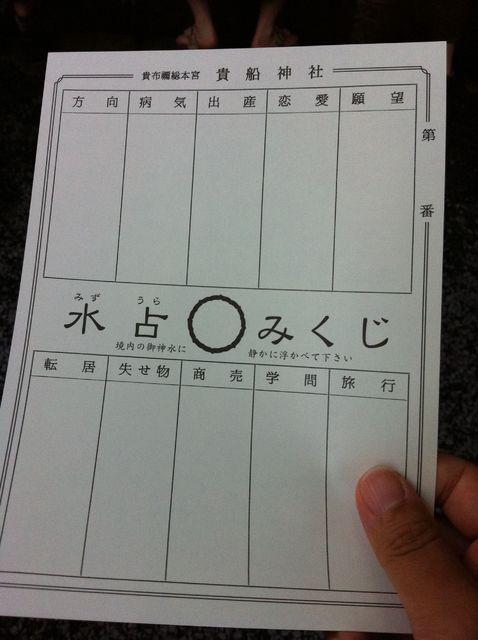 貴布禰総本宮 貴船神社
第 番
方向 病気 出産 恋愛 願望
みず うら
水占 みくじ
境内の御神水に 静かに浮かべて下さい
転居 失せ物 商売 学問 旅行